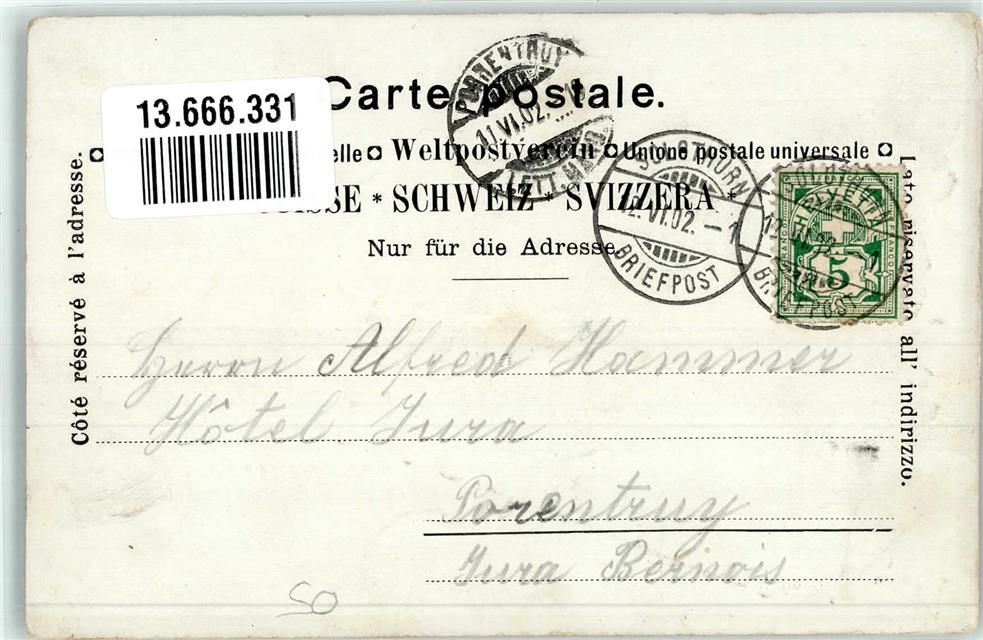 Carte postale.
13.666.331
elle Weltpostverein Unione postale universale
SUISSE * SCHWEIZ * SVIZZERA *
Nur für die Adresse.
Côté réservé à l'adresse.
Lato riservato all' indirizzo.
PORRENTRUY
11.VI.02.
LETT.
SOLOTHURN
12.VI.02. - 1
BRIEFPOST
BRIEFPOST
HELVETIA
FRANCO
5
Herrn Alfred Hammer
Hôtel Jura
Porentruy
Jura Bernois
SO